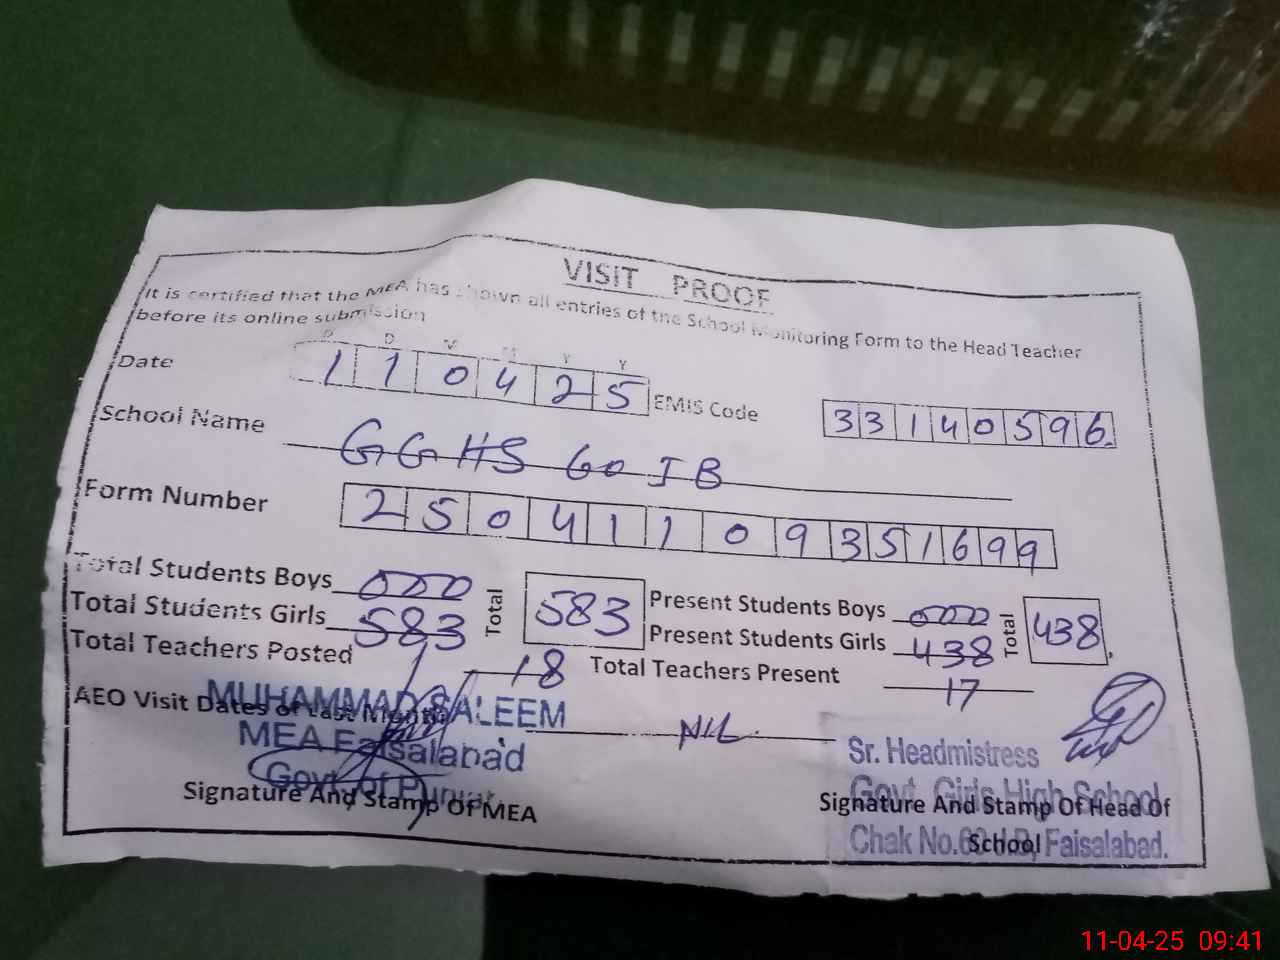 VISIT PROOF
It is certified that the MEA has shown all entries of the School Monitoring Form to the Head Teacher
before its online submission
D D M M Y Y
Date 1 1 0 4 2 5 EMIS Code 3 3 1 4 0 5 9 6
School Name GGHS 60 JB
Form Number 2 5 0 4 1 1 0 9 3 5 1 6 9 9
Total Students Boys 000 Total 583 Present Students Boys 000 Total 438
Total Students Girls 583 Present Students Girls 438
Total Teachers Posted 18 Total Teachers Present 17
AEO Visit Dates of Last Month NIL
MUHAMMAD SALEEM
MEA Faisalabad
Govt. of Punjab
Signature And Stamp Of MEA
Sr. Headmistress
Govt. Girls High School
Chak No.60 J.B, Faisalabad.
Signature And Stamp Of Head Of
School
11-04-25 09:41